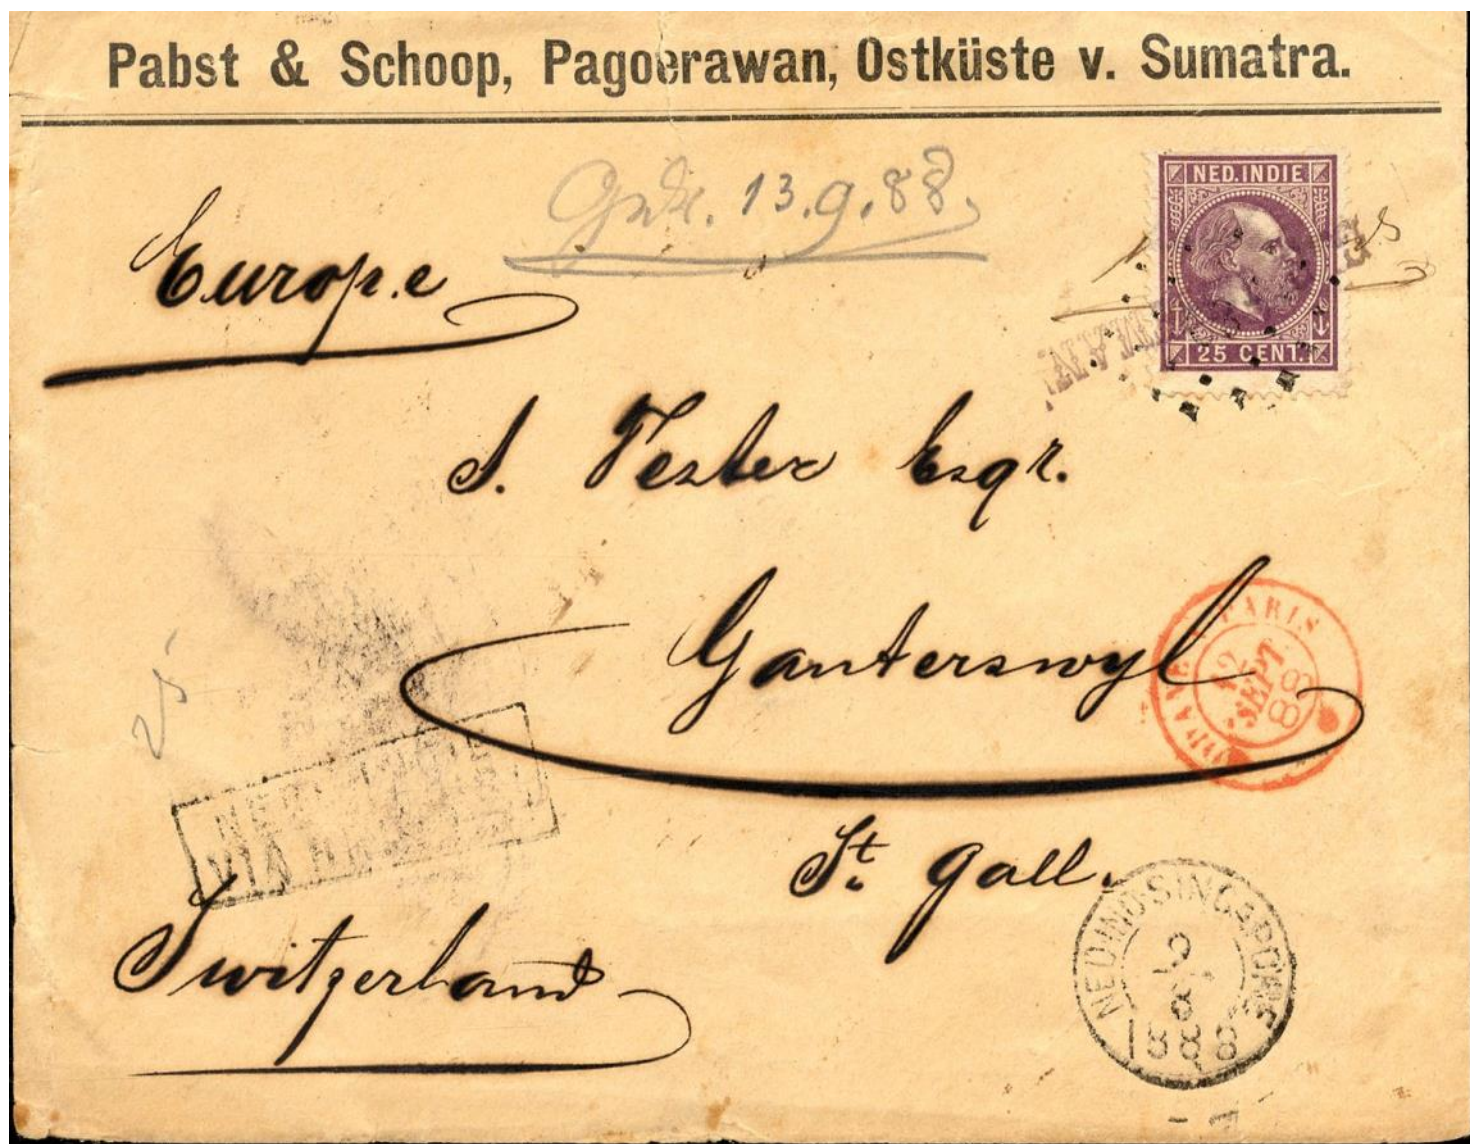 Pabst & Schoop, Pagoerawan, Ostküste v. Sumatra.
13.9.88.
NED. INDIE
25 CENT.
Europe
J. Tester Esqr.
Ganterswyl
PARIS
12
SEPT
88
St. Gall.
VIA
Switzerland
NED:IND:SINGAPORE
9
8
1888